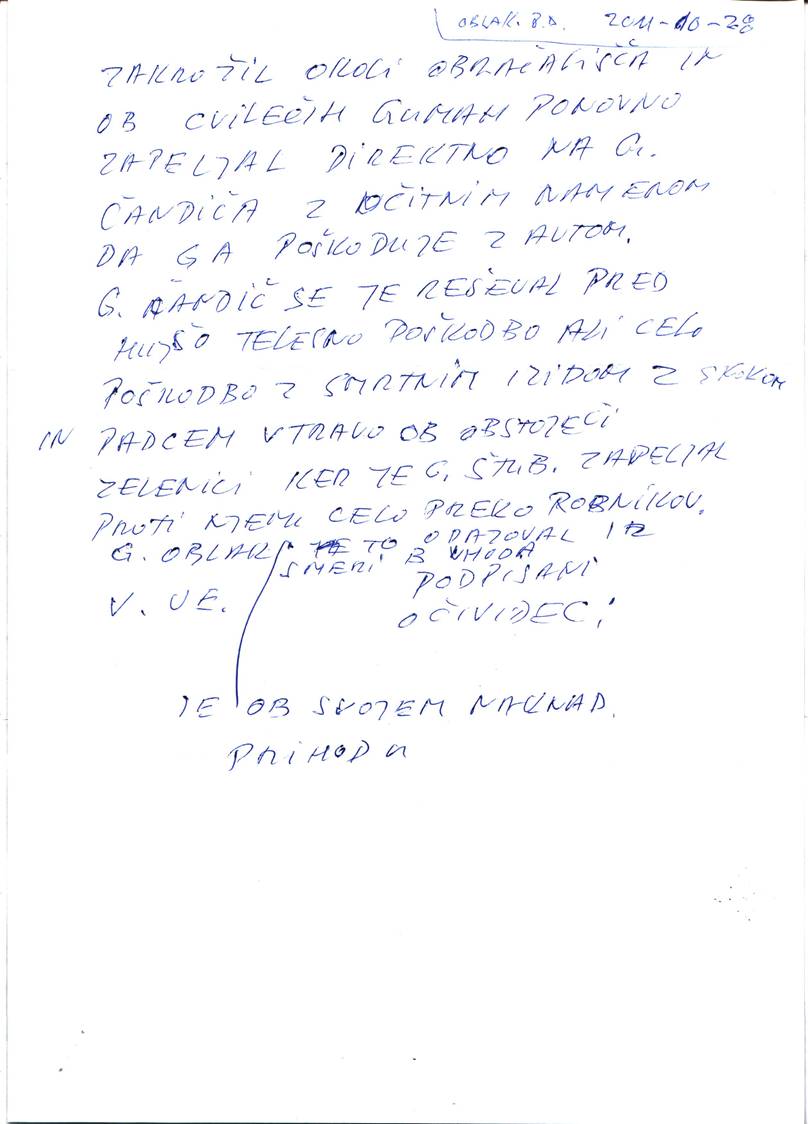 OBLAK. B.D. 2011-10-28
ZAKROŽIL OKOLI OBRAČALIŠČA IN
OB CVILEČIH GUMAH PONOVNO
ZAPELJAL DIREKTNO NA G.
ČANDIČA Z OČITNIM NAMENOM
DA GA POŠKODUJE Z AVTOM.
G. ČANDIČ SE JE REŠEVAL PRED
HUJŠO TELESNO POŠKODBO ALI CELO
POŠKODBO Z SMRTNIM IZIDOM Z SKOKOM
IN PADCEM V TRAVO OB OBSTOJEČI
ZELENICI KER JE G. ŠTUB. ZAPELJAL
PROTI NJEMU CELO PREKO ROBNIKOV.
G. OBLAK TO OPAZOVAL IZ
SMERI B VHODA
PODPISANI
V. UE.
OČIVIDEC:
JE OB SVOJEM NAKNAD.
PRIHODU